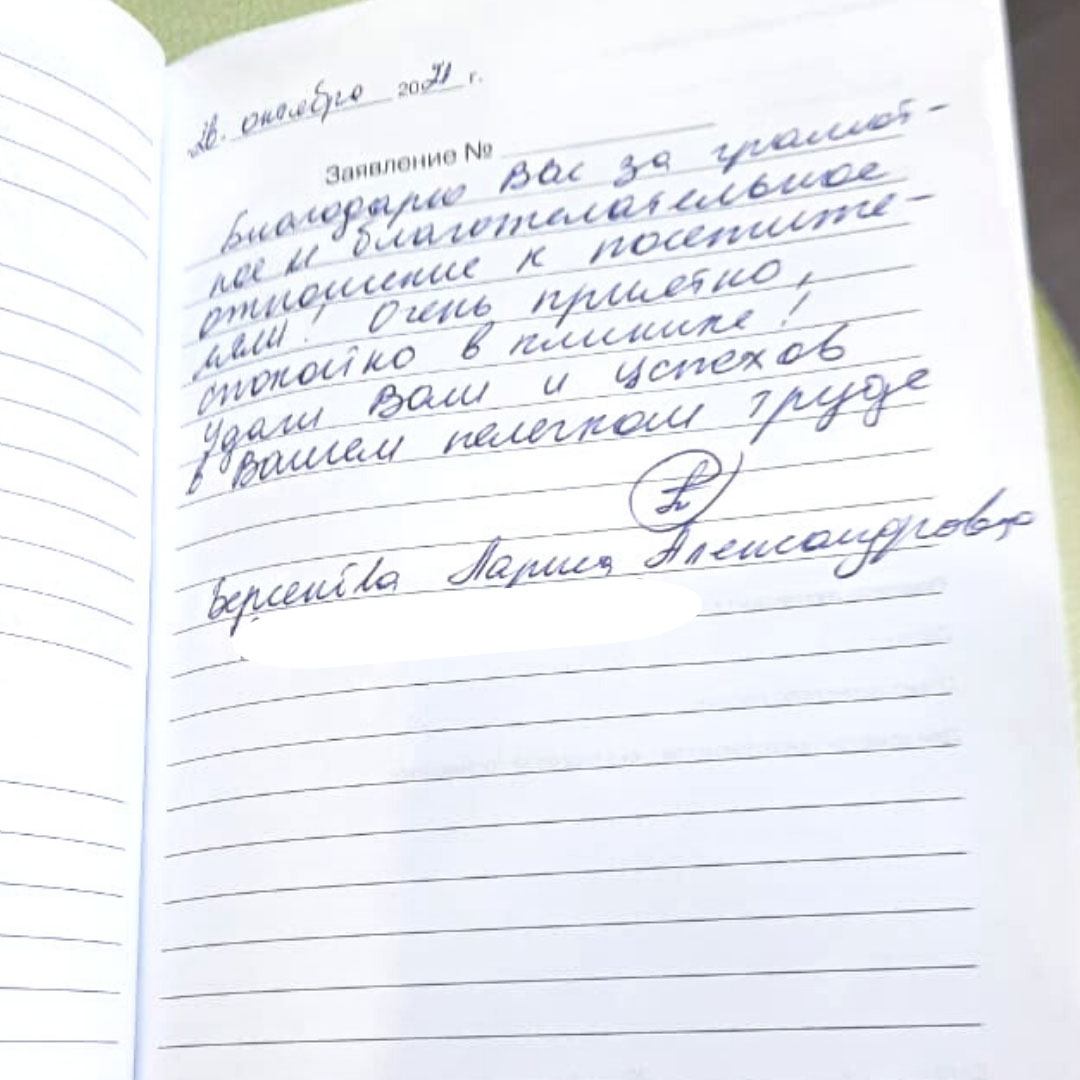 26. октября 2021 г.
Заявление №
Благодарю Вас за грамот-
ное и благожелательное
отношение к посетите-
лям! Очень приятно,
спокойно в клинике!
Удачи Вам и успехов
в Вашем нелегком труде
Берсенёва Лариса Александровна